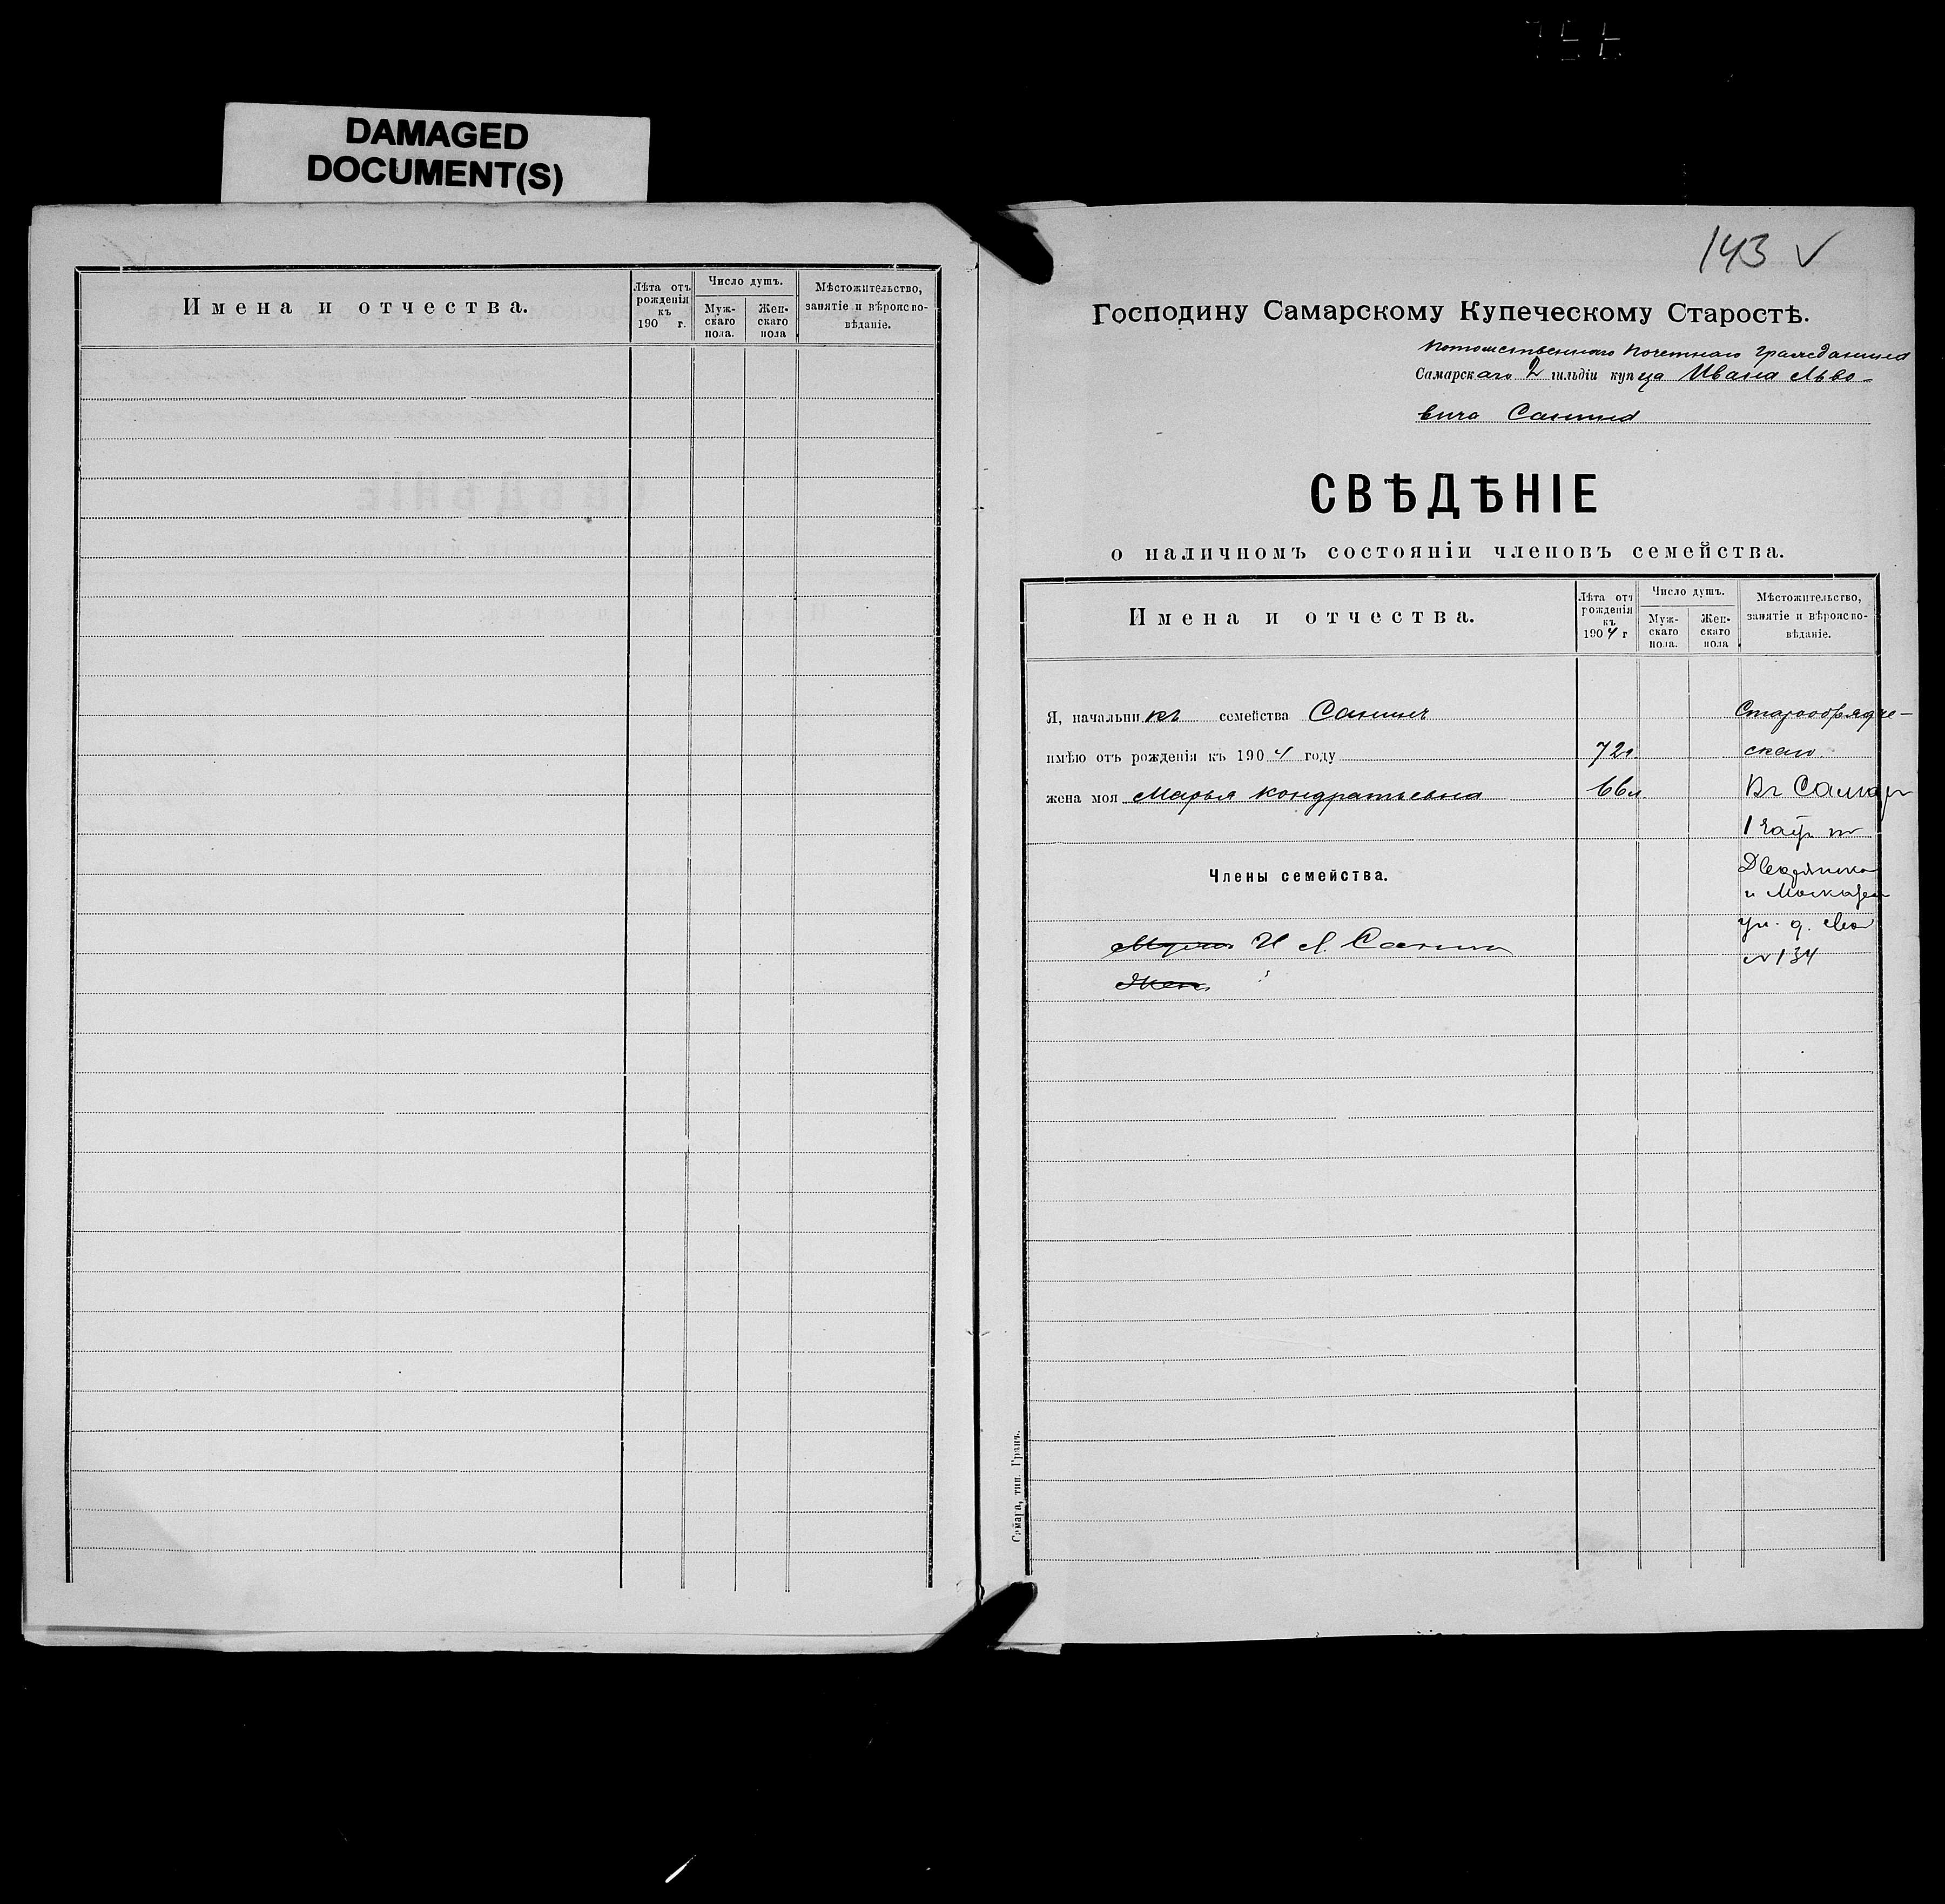 DAMAGED
DOCUMENT(S)
Имена и отчества.
Лѣта отъ рожденія къ 190 г.
Число душъ.
Мужскаго пола.
Женскаго пола
Мѣстожительство, занятіе и вѣроисповѣданіе.
143 ✓
Господину Самарскому Купеческому Старостѣ.
Потомственнаго Почетнаго Гражданина
Самарскаго 2 гильдіи купца Ивана Льво-
вича Санина
СВѢДѢНІЕ
о наличномъ состояніи членовъ семейства.
Имена и отчества.
Лѣта отъ рожденія къ 1904 г
Число душъ.
Мужскаго пола.
Женскаго пола
Мѣстожительство, занятіе и вѣроисповѣданіе.
Я, начальникъ семейства Санинъ Старообрядче-
имѣю отъ рожденія къ 1904 году 72л скаго
жена моя Марья Кондратьевна 66л Въ Самарѣ
1 части
Члены семейства.
Дворянской
и Москат
ул. д.
И Л. Санин
№ 134
Самара, тип. Гранъ.